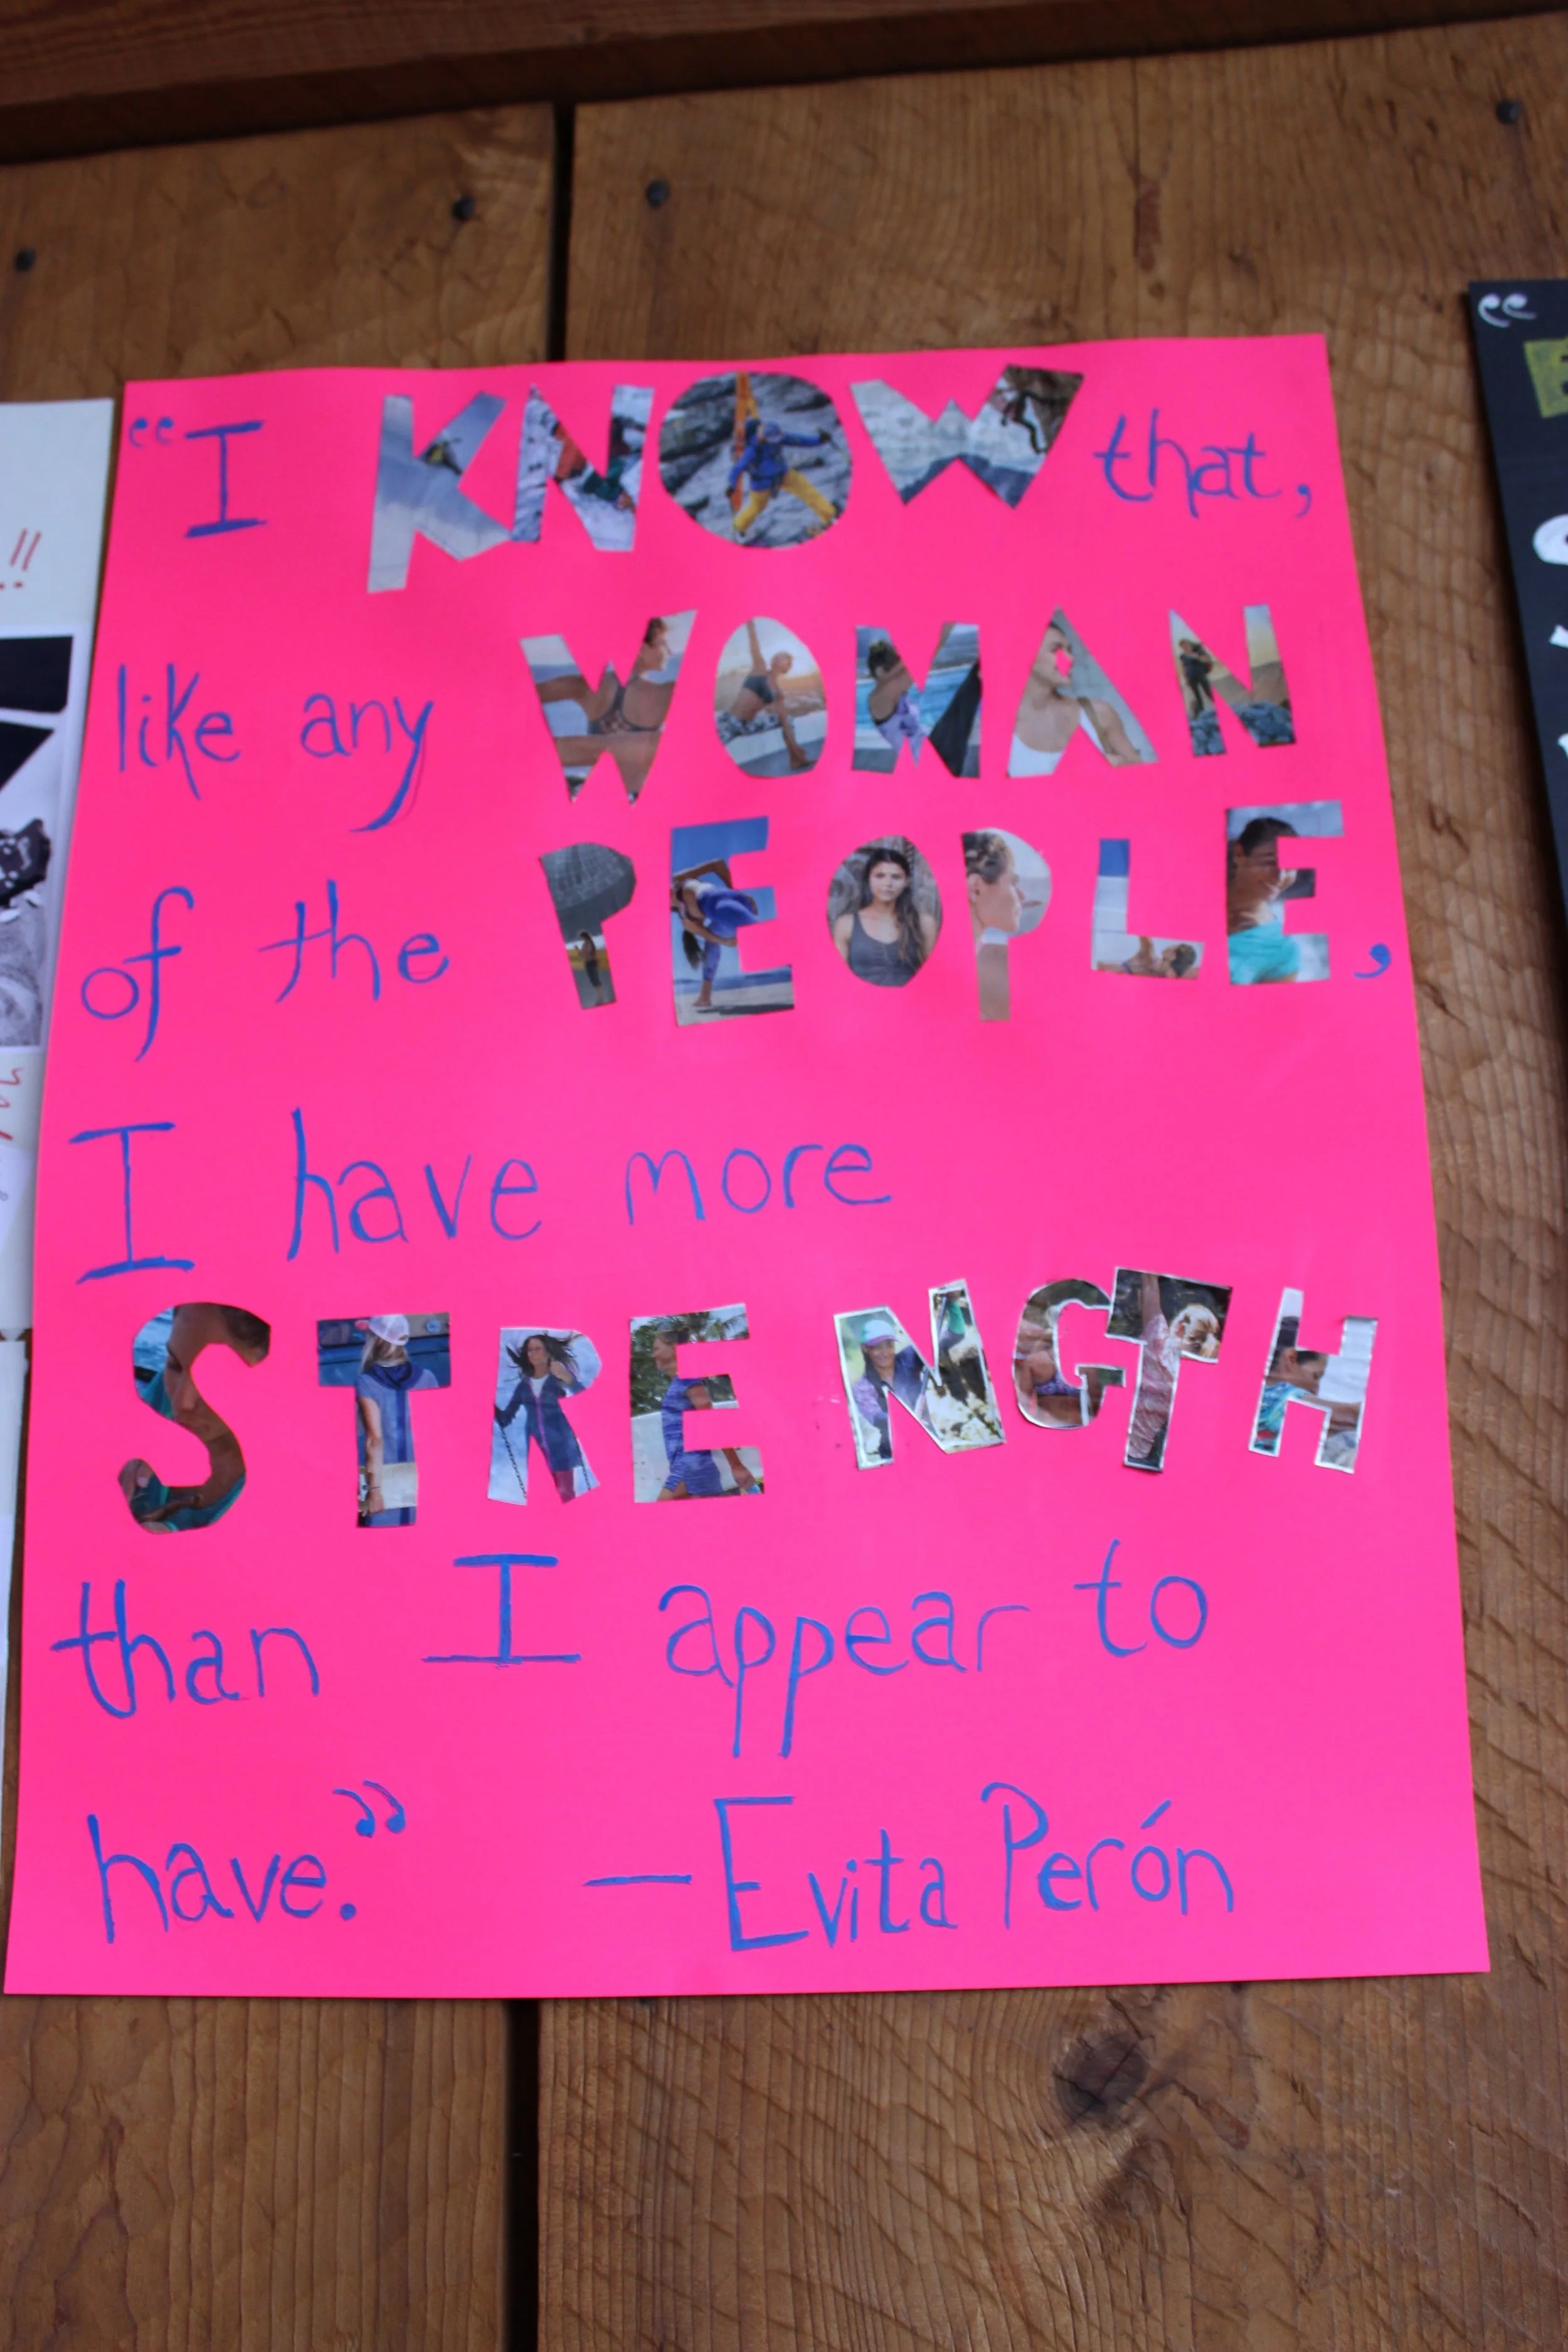 “I KNOW that,
like any WOMAN
of the PEOPLE,
I have more
STRENGTH
than I appear to
have.” — Evita Perón
!!
“